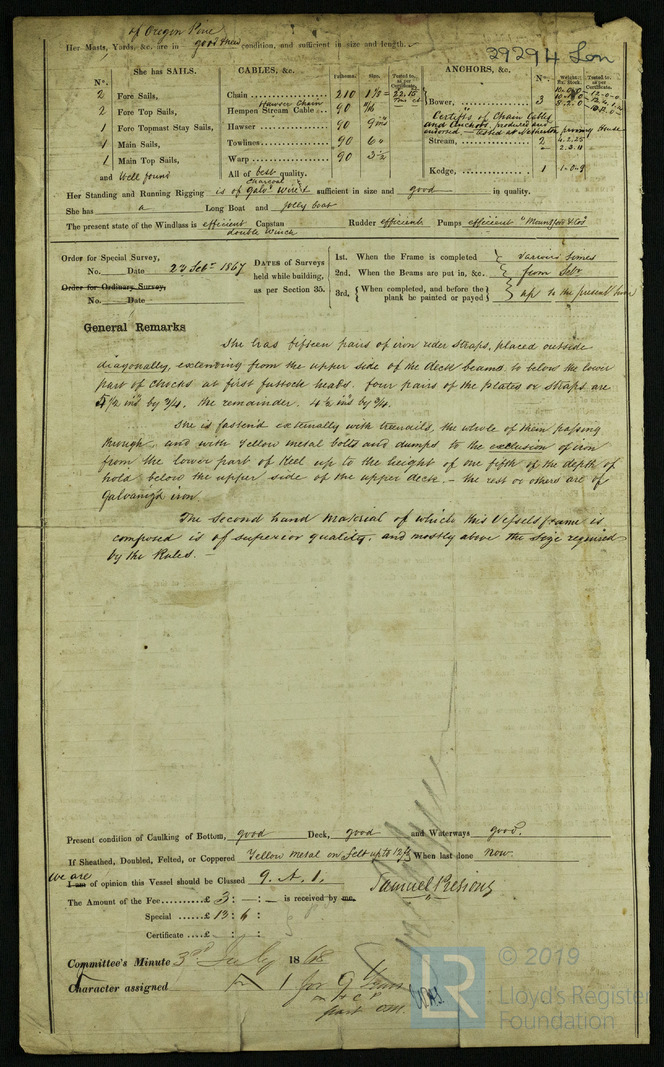 of Oregon Pine
Her Masts, Yards, &c. are in good & new condition, and sufficient in size and length.
29294 Lon
She has SAILS. CABLES, &c. Fathoms. Size. Tested to, as per Certificate. ANCHORS, &c. N°. Weight. Ex. Stock. Tested to, as per Certificate.
N°.
2 Fore Sails, Chain 210
2 Fore Top Sails, Hempen Stream Cable 90
Hawser Chain
Bower, 3
1 Fore Topmast Stay Sails, Hawser 90
Certifs of Chain Cables
and Anchors, produced and
endorsed – tested at Netherton proving House
1 Main Sails, Towlines 90 6"
Stream, 2
1 Main Top Sails, Warp 90 3½
and Well found All of best quality.
Kedge, 1 1-0-9
Charcoal
Her Standing and Running Rigging is of Galv. wire & sufficient in size and good in quality.
She has a Long Boat and jolly boat
The present state of the Windlass is efficient Capstan Rudder efficient Pumps efficient
double Winch
Order for Special Survey,
No. Date 1867
Order for Ordinary Survey,
No. Date
DATES of Surveys
held while building,
as per Section 35.
1st. When the Frame is completed various times
2nd. When the Beams are put in, &c. from
3rd, When completed, and before the plank be painted or payed up to the present time
General Remarks
She has fifteen pairs of iron rider straps, placed outside
diagonally, extending from the upper side of the deck beams to below the lower
part of chocks at first futtock heads. four pairs of the plates or straps are
5½ ins by ¾. the remainder. 4½ ins by ¾.
She is fastend externally with treenails, the whole of them passing
through, and with yellow metal bolts and dumps to the exclusion of iron
from the lower part of Keel up to the height of one fifth of the depth of
hold below the upper side of the upper deck. – the rest or others are of
Galvanized iron.
The second hand material of which this Vessels frame is
composed is of superior quality, and mostly above the size required
by the Rules. –
Present condition of Caulking of Bottom, good Deck, good and Waterways good.
If Sheathed, Doubled, Felted, or Coppered Yellow metal on felt up to When last done now.
we are
I am of opinion this Vessel should be Classed 9. A. 1.
The Amount of the Fee £ 3 : – : – is received by me.
Special £ 13 : 6 :
Certificate :
Committee's Minute 3rd July 1868
Character assigned A 1 for 9 Years
© 2019
LR
Lloyd's Register
Foundation